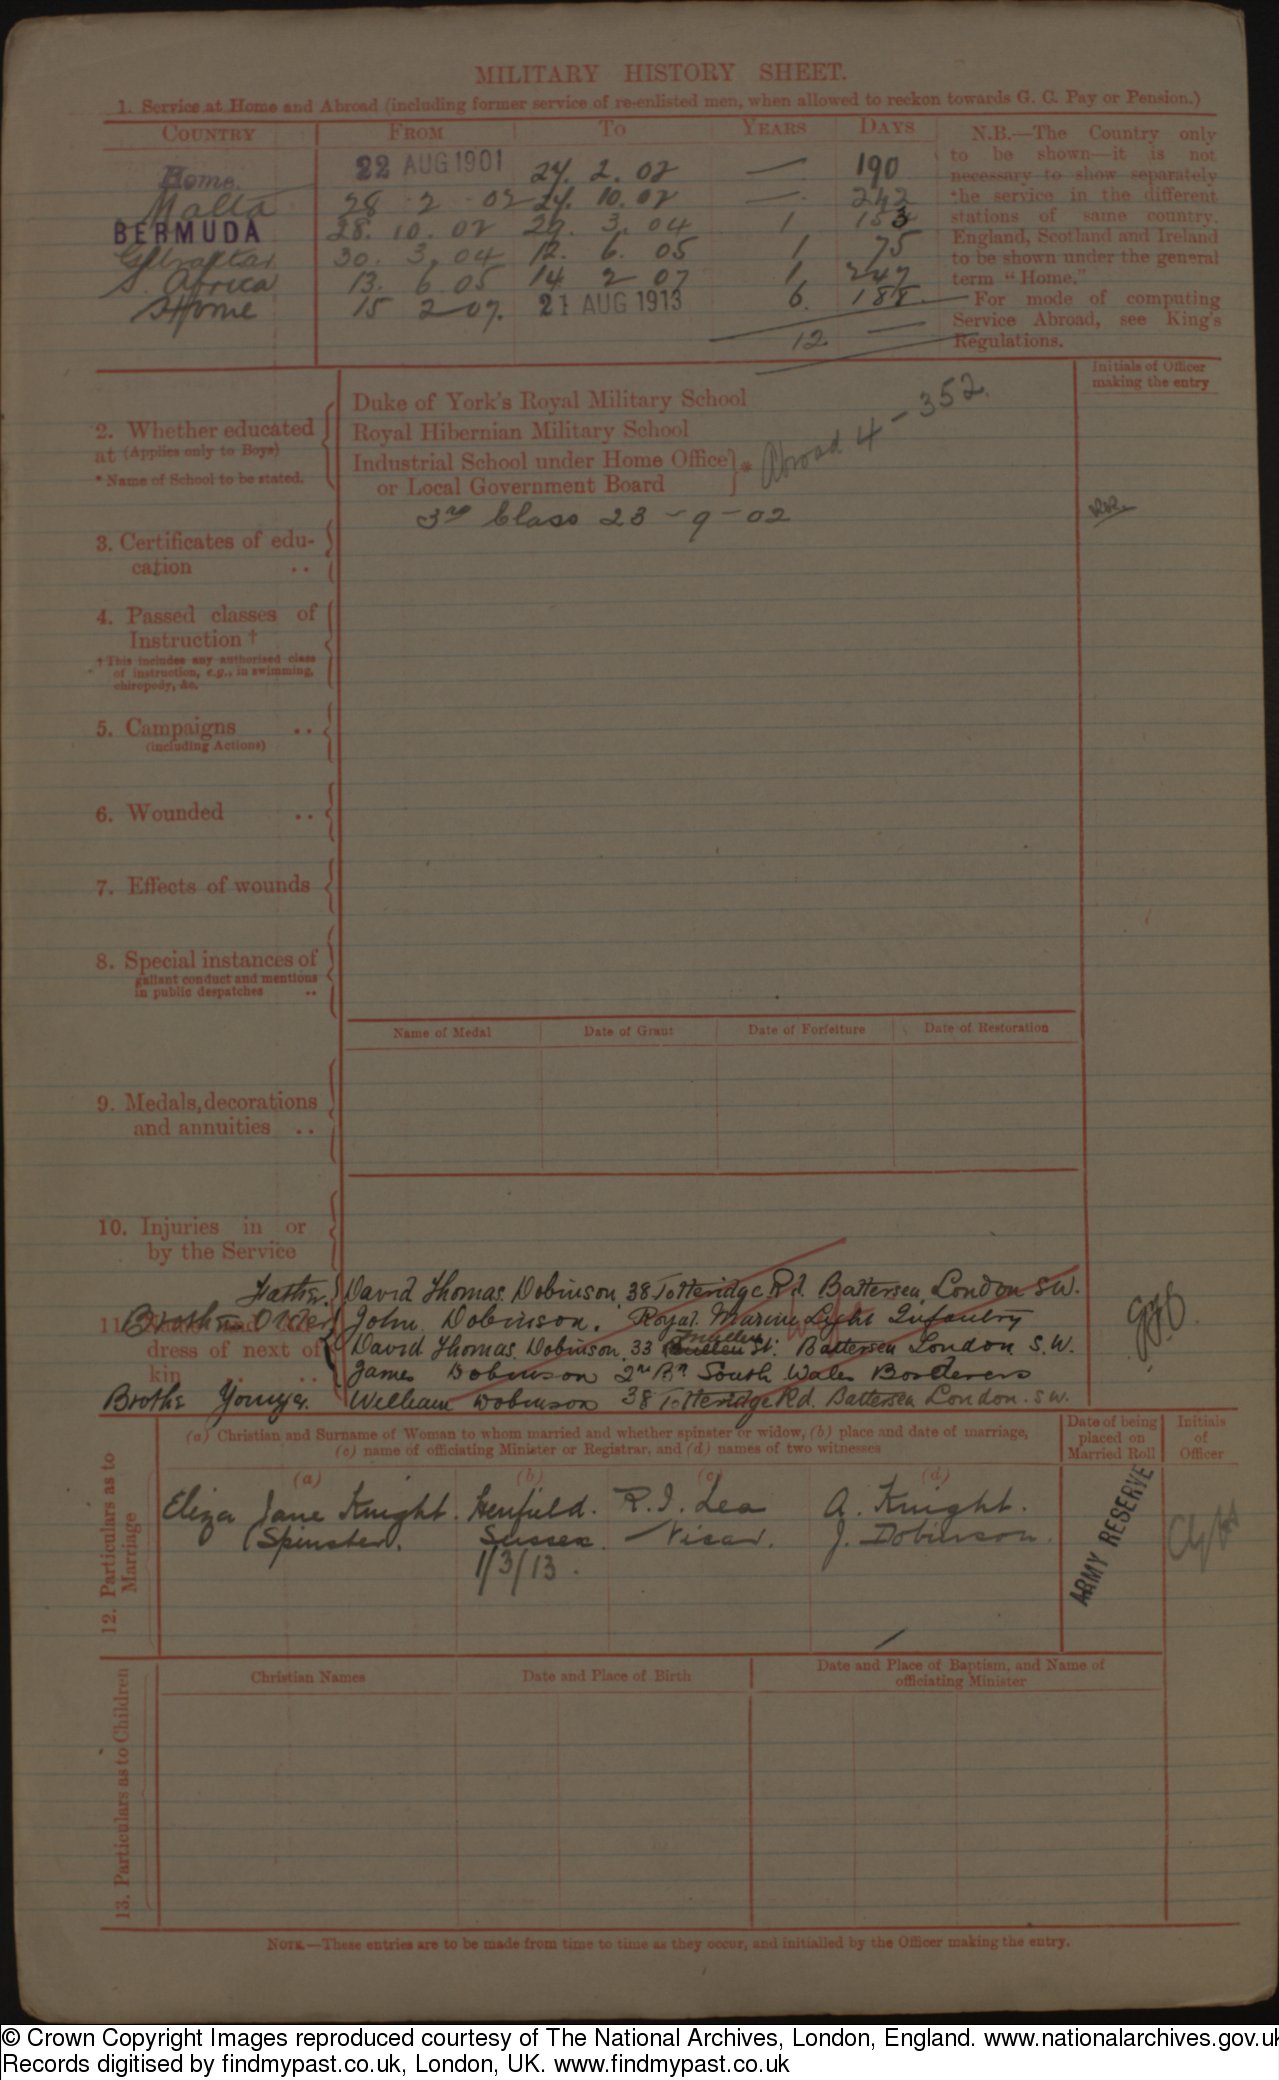 MILITARY HISTORY SHEET.
1. Service at Home and Abroad (including former service of re-enlisted men, when allowed to reckon towards G. C. Pay or Pension.)
COUNTRY FROM TO YEARS DAYS
Home. 22 AUG 1901 24. 2. 02 — 190
Malta 28 . 2 . 02 27. 10. 02 —. 242
BERMUDA 28. 10. 02 29. 3. 04 1 153
Gibraltar 30. 3. 04 12. 6. 05 1 75
S. Africa 13. 6. 05 14 2 07 1 247
Home 15 2 07. 21 AUG 1913 6. 188
12 —
N.B.—The Country only
to be shown—it is not
necessary to show separately
the service in the different
stations of same country.
England, Scotland and Ireland
to be shown under the general
term "Home."
For mode of computing
Service Abroad, see King's
Regulations.
Initials of Officer
making the entry
2. Whether educated
at (Applies only to Boys)
* Name of School to be stated.
Duke of York's Royal Military School
Royal Hibernian Military School
Industrial School under Home Office
or Local Government Board
*
Abroad 4 - 352.
3. Certificates of edu-
cation ..
3rd Class 23 - 9 - 02
4. Passed classes of
Instruction †
† This includes any authorised class
of instruction, e.g., in swimming,
chiropody, &c.
5. Campaigns ..
(including Actions)
6. Wounded ..
7. Effects of wounds
8. Special instances of
gallant conduct and mentions
in public despatches ..
Name of Medal Date of Grant Date of Forfeiture Date of Restoration
9. Medals, decorations
and annuities ..
10. Injuries in or
by the Service
11.
dress of next of
kin ..
Father. David Thomas Dobinson, 38 Totteridge Rd. Battersea, London S.W.
Brothers Older John Dobinson. Royal Marine Light Infantry
David Thomas Dobinson 33 St. Battersea London S.W.
James Dobinson 2nd Bn South Wales Borderers
Brothr Younger. William Dobinson 38 Totteridge Rd. Battersea London. S.W.
12. Particulars as to
Marriage
(a) Christian and Surname of Woman to whom married and whether spinster or widow, (b) place and date of marriage,
(c) name of officiating Minister or Registrar, and (d) names of two witnesses
Date of being
placed on
Married Roll
Initials
of
Officer
(a) (b) (c) (d)
Eliza Jane Knight. Henfield. R. I. Lea A. Knight.
(Spinster). Sussex. Vicar. J. Dobinson.
1/3/13.
ARMY RESERVE
13. Particulars as to Children
Christian Names Date and Place of Birth Date and Place of Baptism, and Name of
officiating Minister
NOTE.—These entries are to be made from time to time as they occur, and initialled by the Officer making the entry.
© Crown Copyright Images reproduced courtesy of The National Archives, London, England. www.nationalarchives.gov.uk
Records digitised by findmypast.co.uk, London, UK. www.findmypast.co.uk